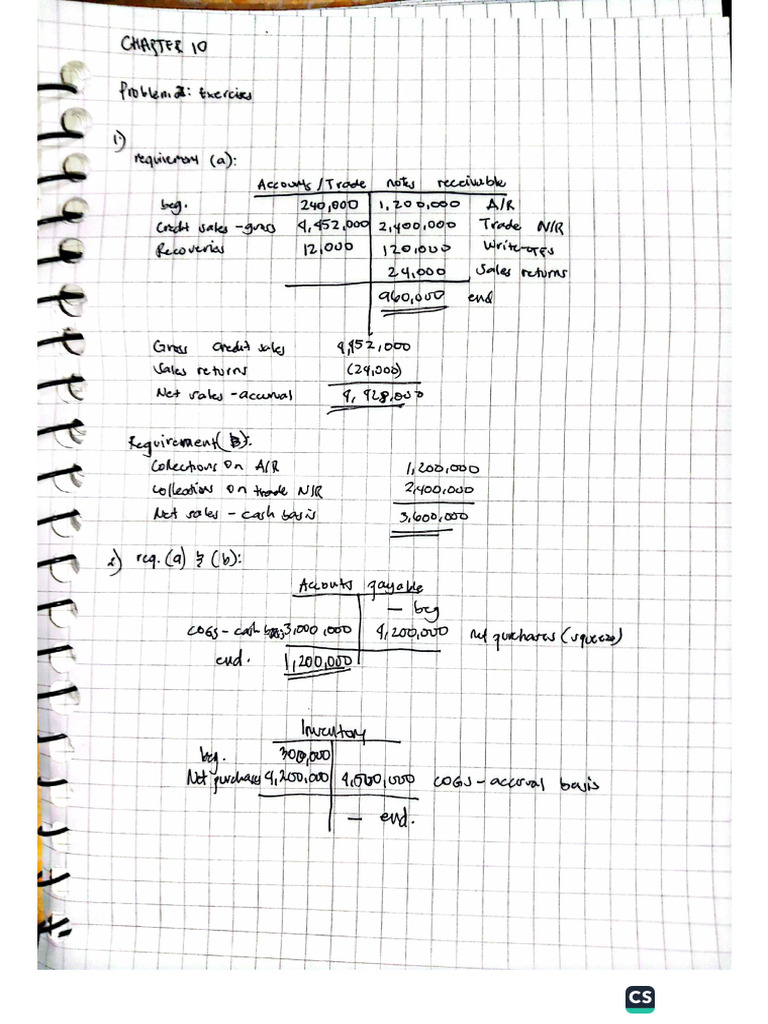 CHAPTER 10
Problem 2: Exercises
1)
requirement (a):
Accounts / Trade notes receivable
beg. 240,000 1,200,000 A/R
Credit sales - gross 4,452,000 2,400,000 Trade N/R
Recoveries 12,000 120,000 Write-offs
24,000 Sales returns
960,000 end
Gross Credit sales 4,452,000
Sales returns (24,000)
Net sales - accrual 4,428,000
Requirement (b):
Collections on A/R 1,200,000
Collection on trade N/R 2,400,000
Net sales - cash basis 3,600,000
2) req. (a) & (b):
Accouts payable
— beg
COGS - cash basis 3,000,000 4,200,000 net purchases (squeeze)
end. 1,200,000
Inventory
beg. 300,000
Net purchases 4,200,000 4,500,000 COGS - accrual basis
— end.
CS